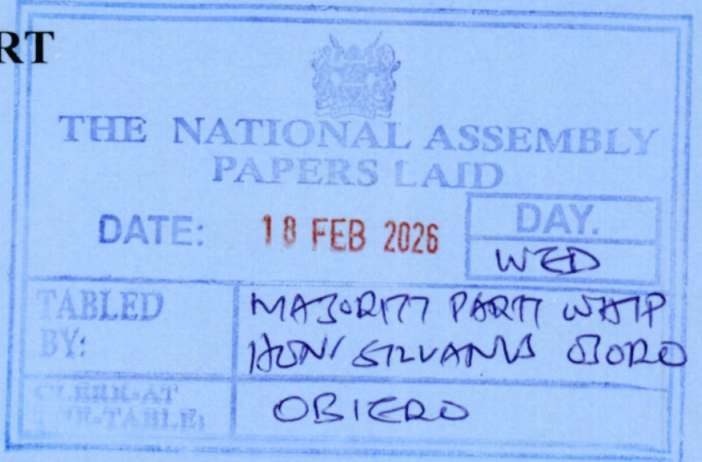 RT
THE NATIONAL ASSEMBLY
PAPERS LAID
DATE: 18 FEB 2026
DAY.
WED
TABLED BY:
MAJORITY PARTY WHIP
HON SILVANUS OSORO
CLERK-AT THE-TABLE:
OBIERO